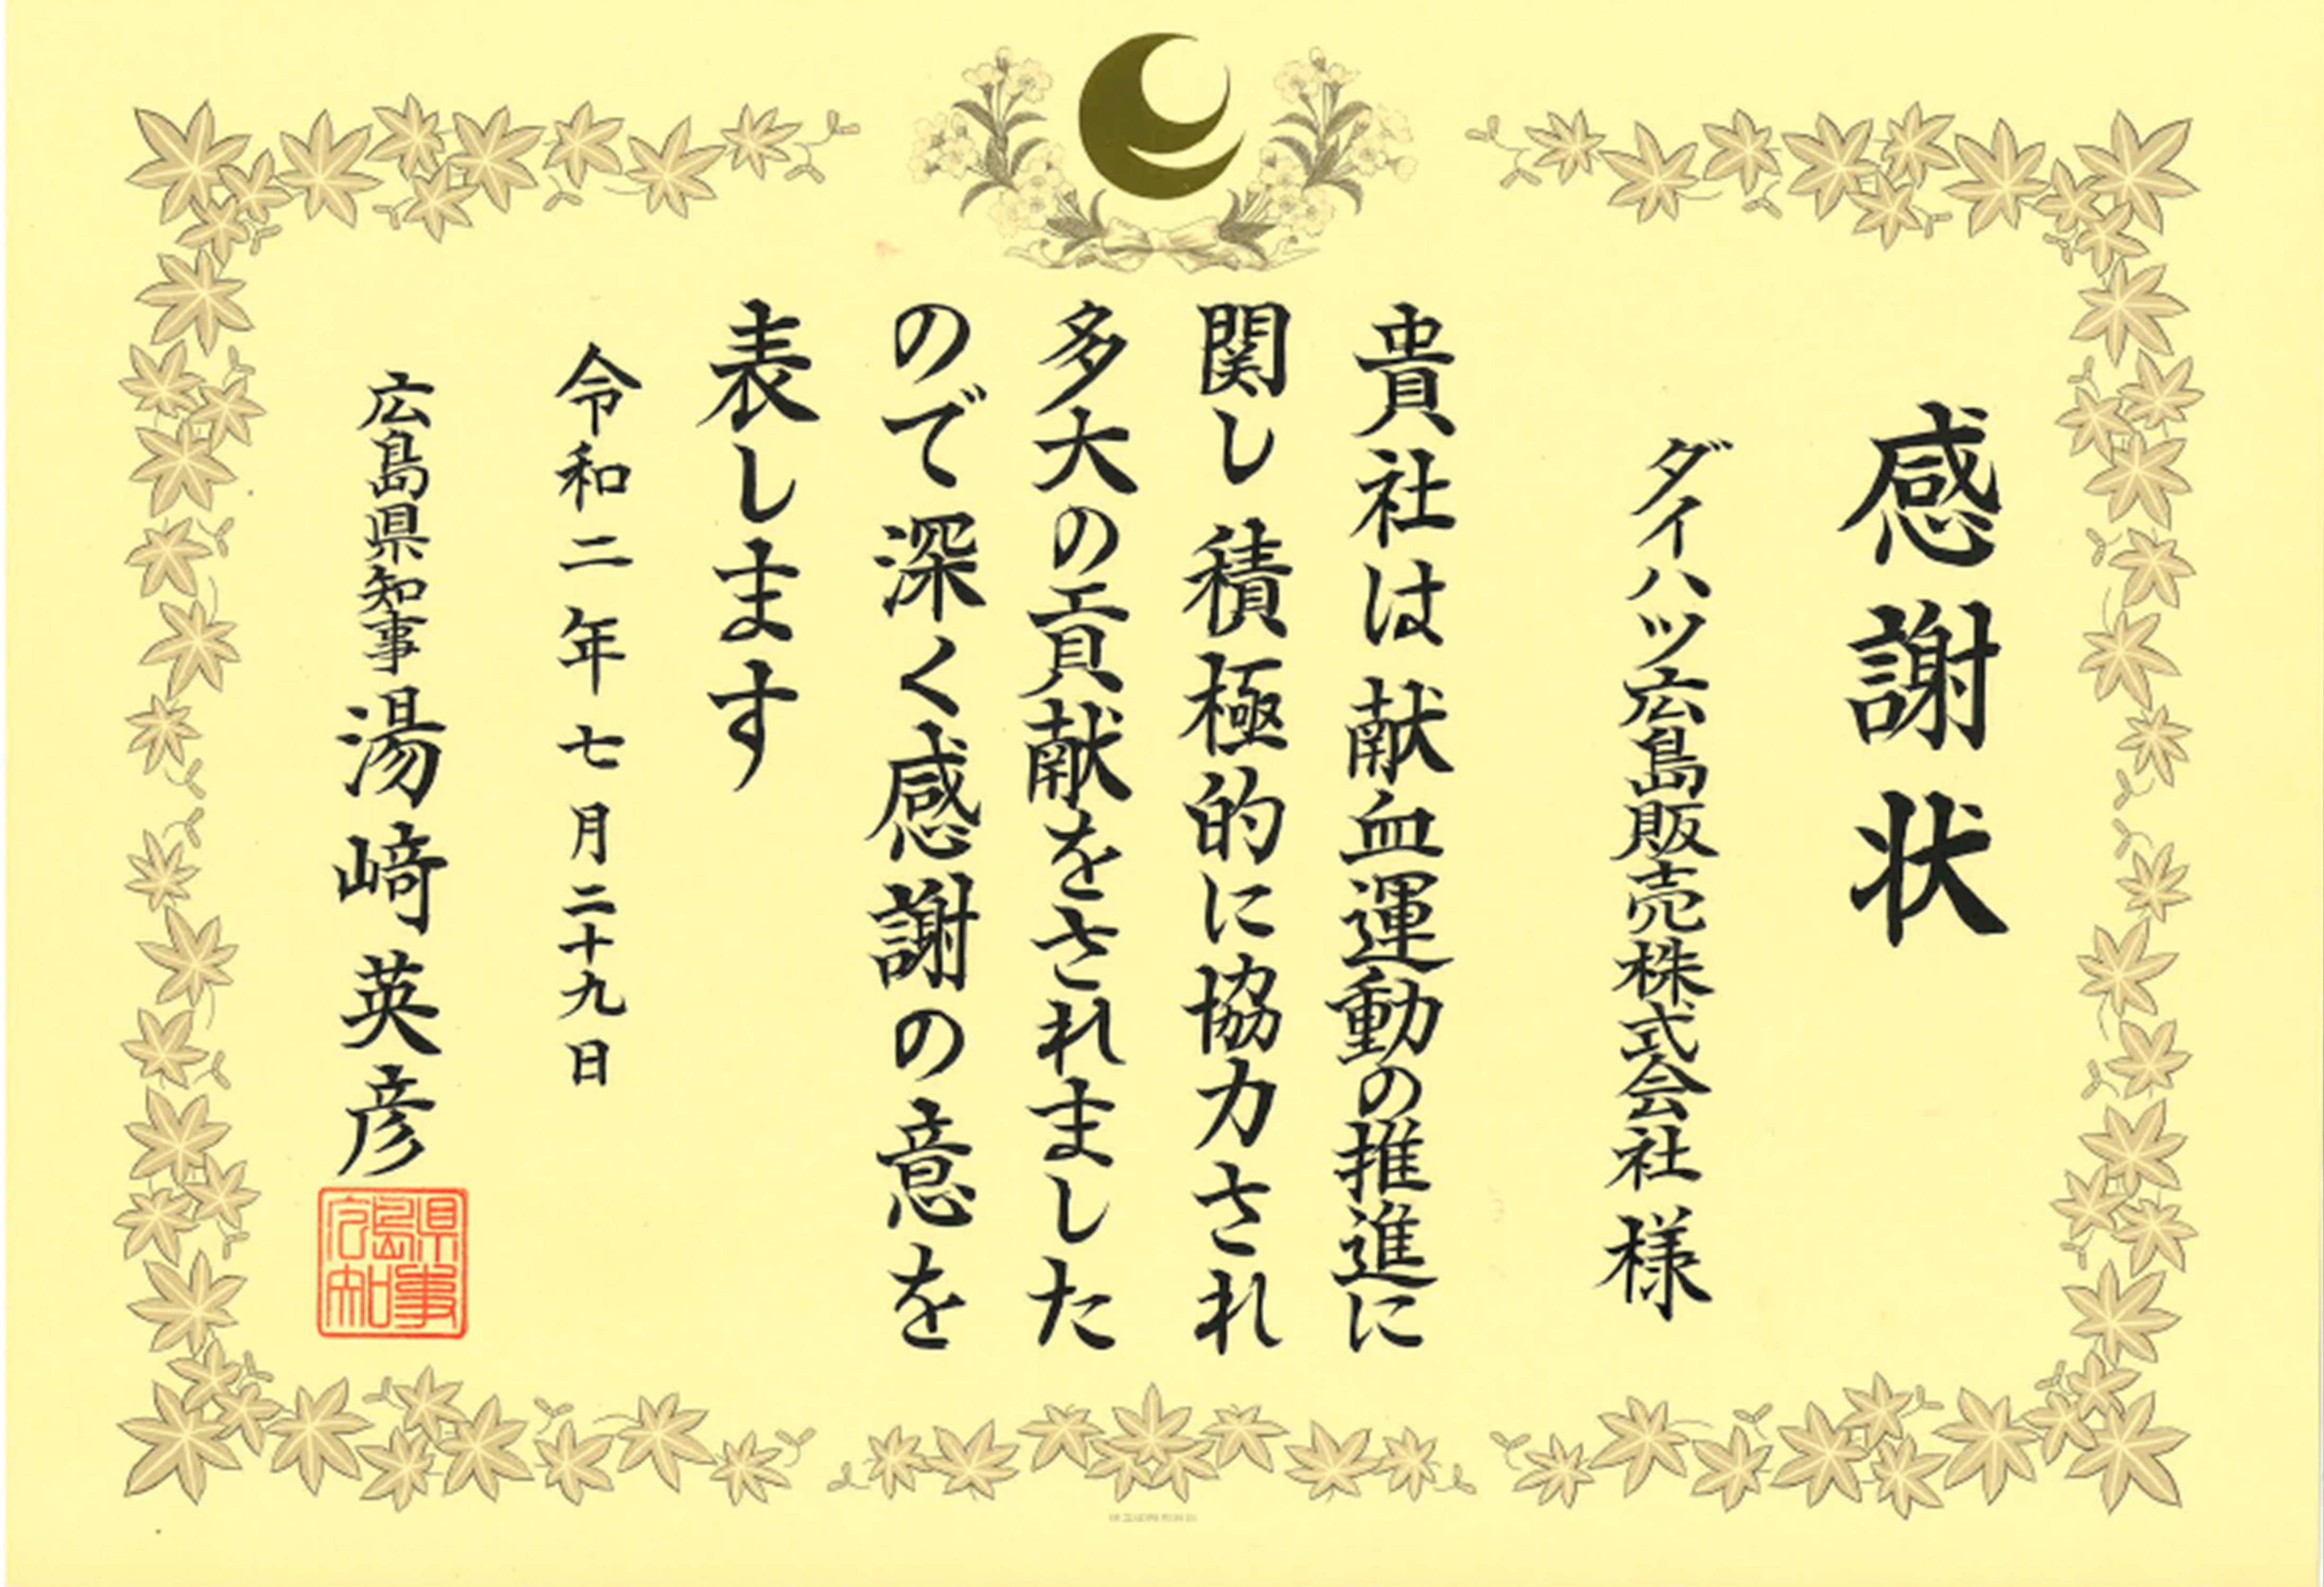 感謝状
ダイハツ広島販売株式会社 様
貴社は献血運動の推進に
関し積極的に協力され
多大の貢献をされました
ので深く感謝の意を
表します
令和二年七月二十九日
広島県知事 湯﨑英彦